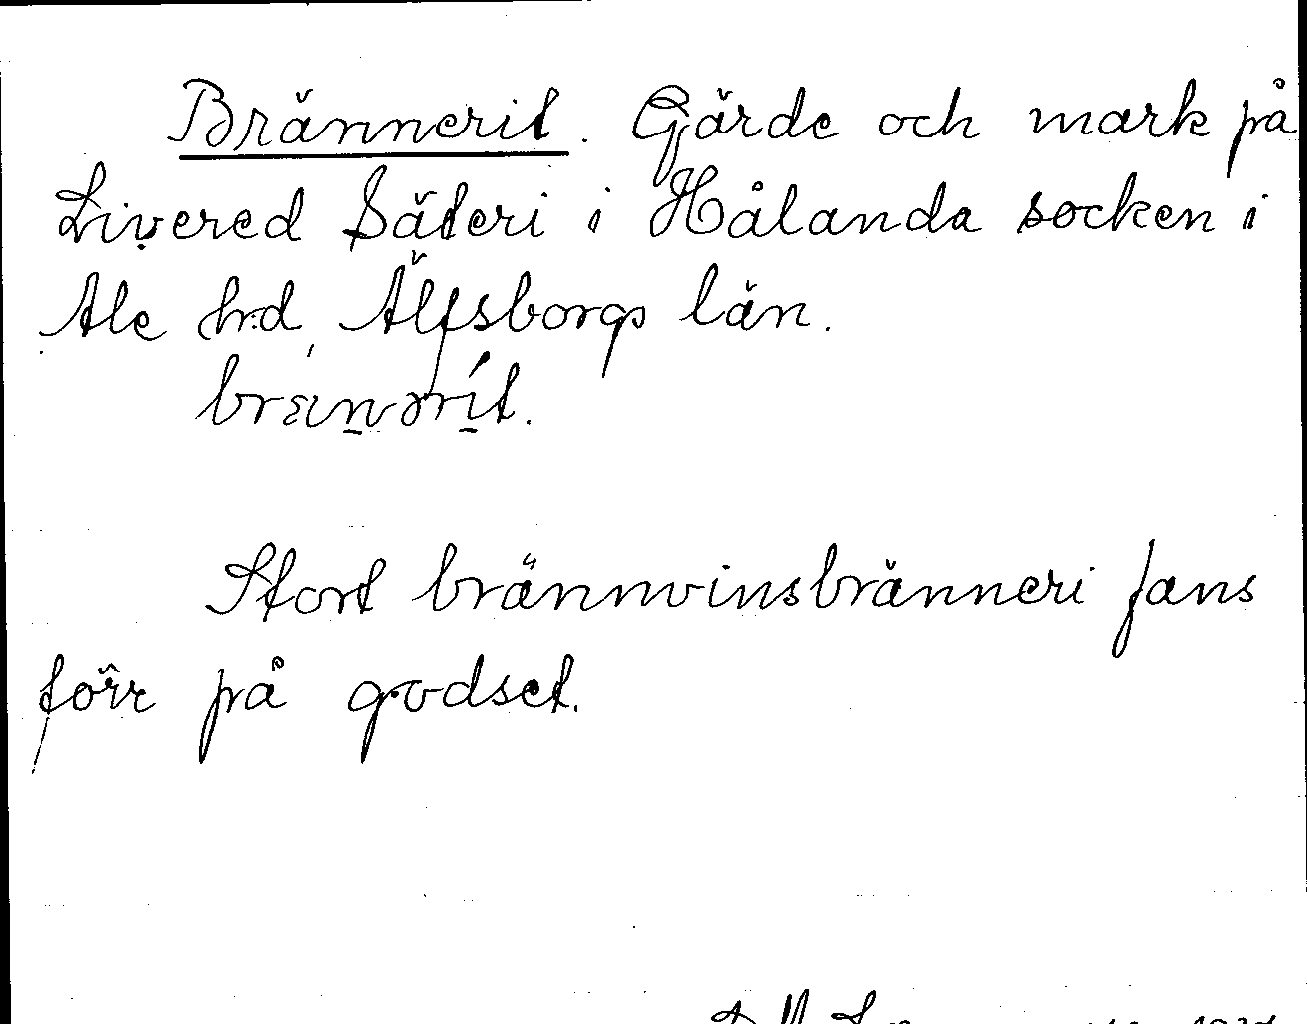 Brännerit. Gärde och mark på
Livered Säteri i Hålanda socken i
Ale hrd, Älfsborgs län.
Stort brännvinsbränneri fans
förr på godset.